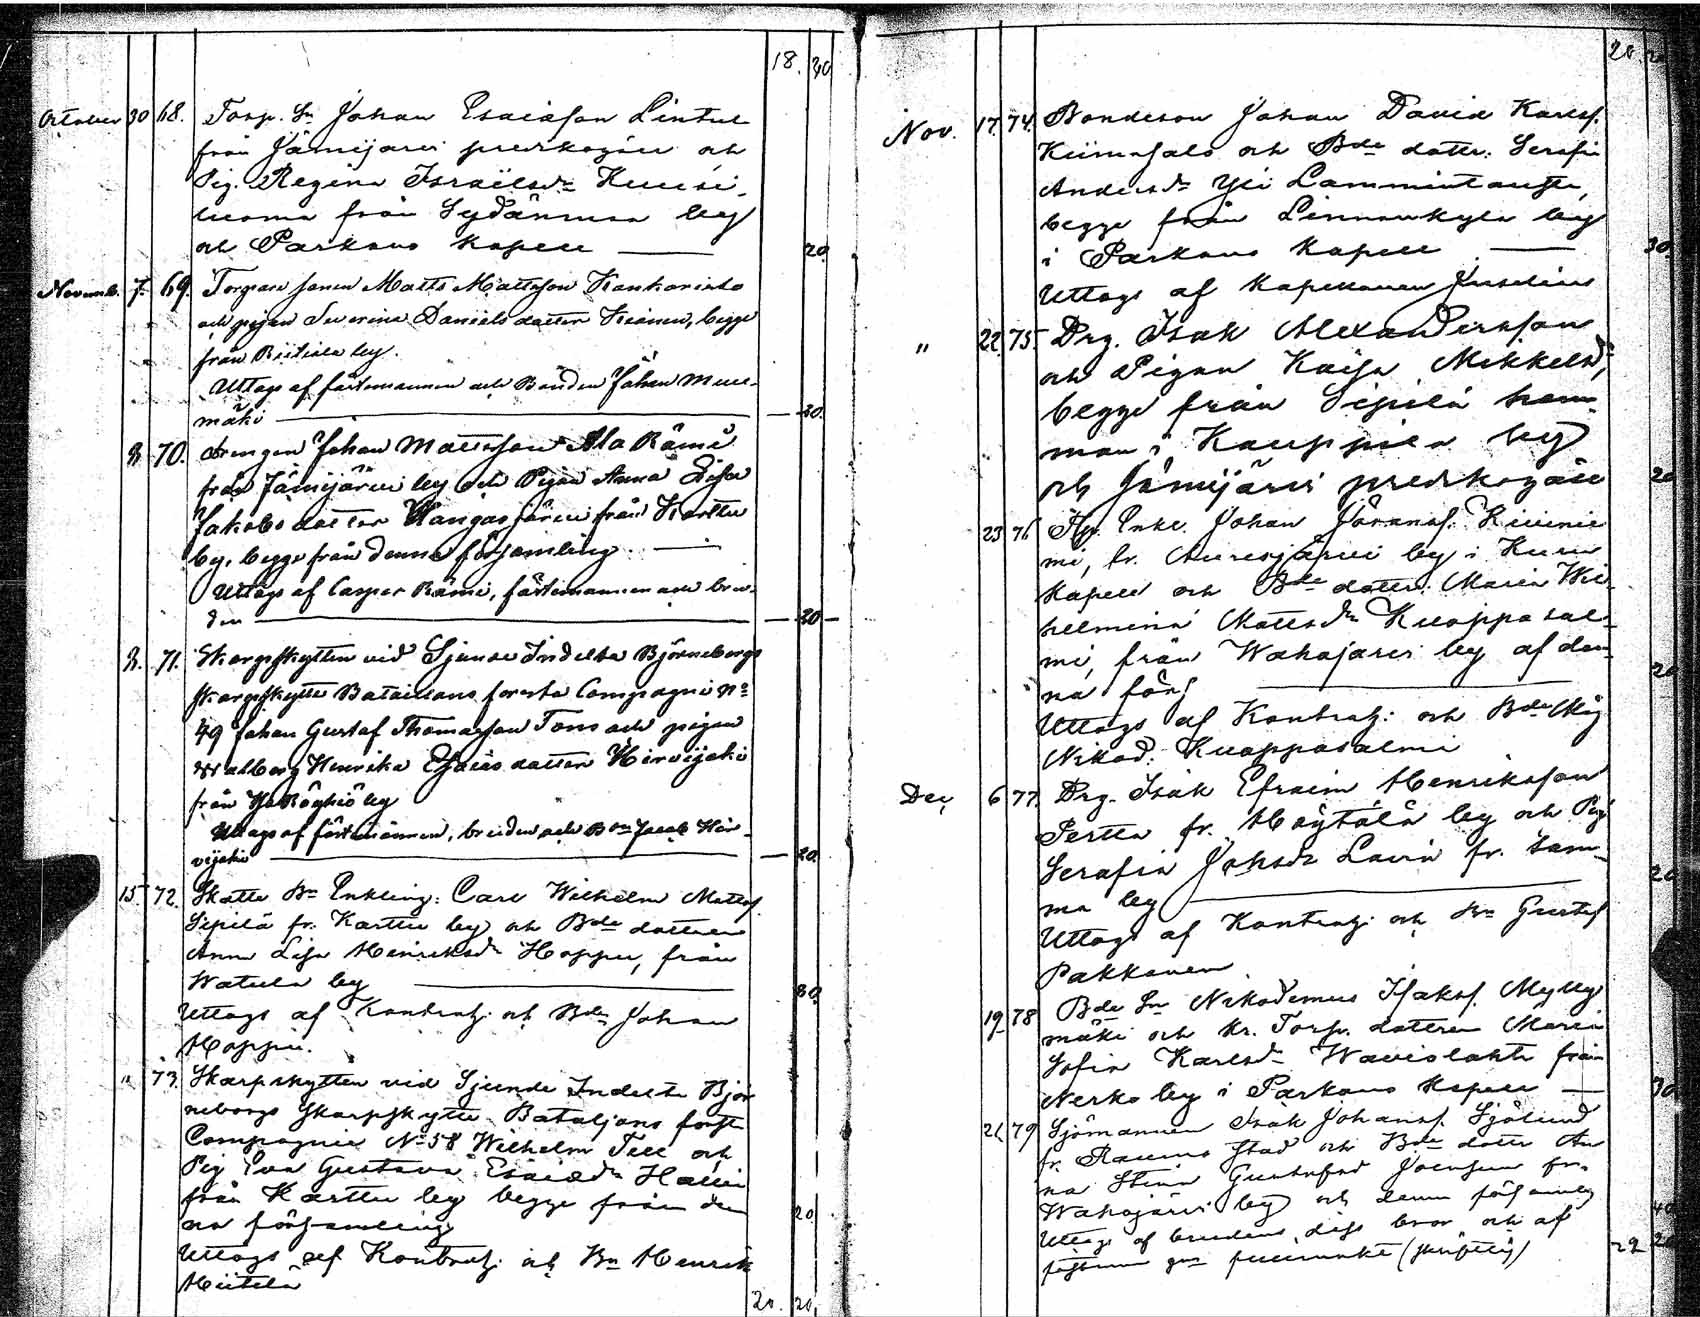 18. 40
October 30 68. Torp. Sn Johan Esaiasson Lintul
från Jämijärvi predikogäll och
Pig. Regina Israëlsdr Kuusi-
luoma från Sydänmaa by
och Parkano Kapell — 20.
Novemb. 7. 69. Torpare sonen Matts Mattsson Kankaristo
och pigan Severina Daniels dotter Keinen, begge
från Riitiala by.
Uttogs af fästemannen och Bonden Johan Muu-
mäki — 20.
8. 70. Drengen Johan Mattsson Ala Rämi
från Jämijärvi by och Pigan Anna Lisa
Jakobs dotter Kangasjärvi från Karttu
by, begge från denna församling. —
Uttogs af Casper Rämi, fästemannen och bru-
den — 20
8. 71. Skarpskytten vid Sjunde Indelta Björneborgs
skarpskytte Bataillons första Compagni No
49 Johan Gustaf Thomasson Tors och pigan
Walborg Henrika Esaias dotter Hirvijoki
från Yli Röyhiö by
Uttogs af fästemannen, bruden och Bon Jacob Hir-
vijoki — 20.
15 72. Skatte Bn Enkling: Carl Wilhelm Mattss.
Sipilä fr. Karttu by och Bde dottren
Anna Lisa Henriksdr Hoppu, från
Watula by — 30.
Uttogs af Kontrah: och Bdn Johan
Hoppu.
" 73. Skarpskytten vid Sjunde Indelta Björ
neborgs Skarpskytte Bataljons första
Compagnie No 58 Wilhelm Tell och
Pig Eva Gustava Esaiædr Halli
från Karttu by begge från den
na församling 20
Uttogs af Kontrah: och Bn Henrik
Hiitelä
20. 20.
20. 20
Nov. 17. 74. Bondeson Johan David Karlss.
Kiimasalo och Bde dotter: Serafia
Andersdr Yli Lammintausta,
begge från Linnankylä by
i Parkano Kapell — 30.
Uttogs af Kapellanen Juselius
" 22. 75. Drg. Isak Alexandersson
och Pigan Kaisa Mikkelsdr,
begge från Sipilä hem-
man i Kauppila by
och Jämijärvi predikogäll 20
23 76 Sp. Enkl. Johan Jöranss. Kivinie
mi, fr. Aurejärvi by i Kuru
Kapell och Bde dotter Maria Wil-
helmina Mattsdr Kuoppasal-
mi, från Wahojärvi by af den-
na förs. — 20
Uttogs af Kontrah: och Bde Måg
Nikod: Kuoppasalmi
Dec. 6 77. Drg. Isak Efraim Henriksson
Pertta fr. Höytälä by och Pig
Serafia Johsdr Lavia fr. sam-
ma by — 20
Uttogs af Kontrah: och Bn Gustaf
Pakkanen
19 78 Bde Sn Nikodemus Isakss. Mylly
mäki och Kr. Torp. dottren Maria
Sofia Karlsdr Waviolahti från
Nerko by i Parkano Kapell — 30
21 79 Sjömannen Isak Johanss. Sjölund
fr. Raumo Stad och Bde dottr An
na Stina Gustafsd Joensuu fr.
Wahojärvi by och denna församling 40
Uttogs af brudens bror och af
fästmm gm fullmakt (skriftlig)
22 20